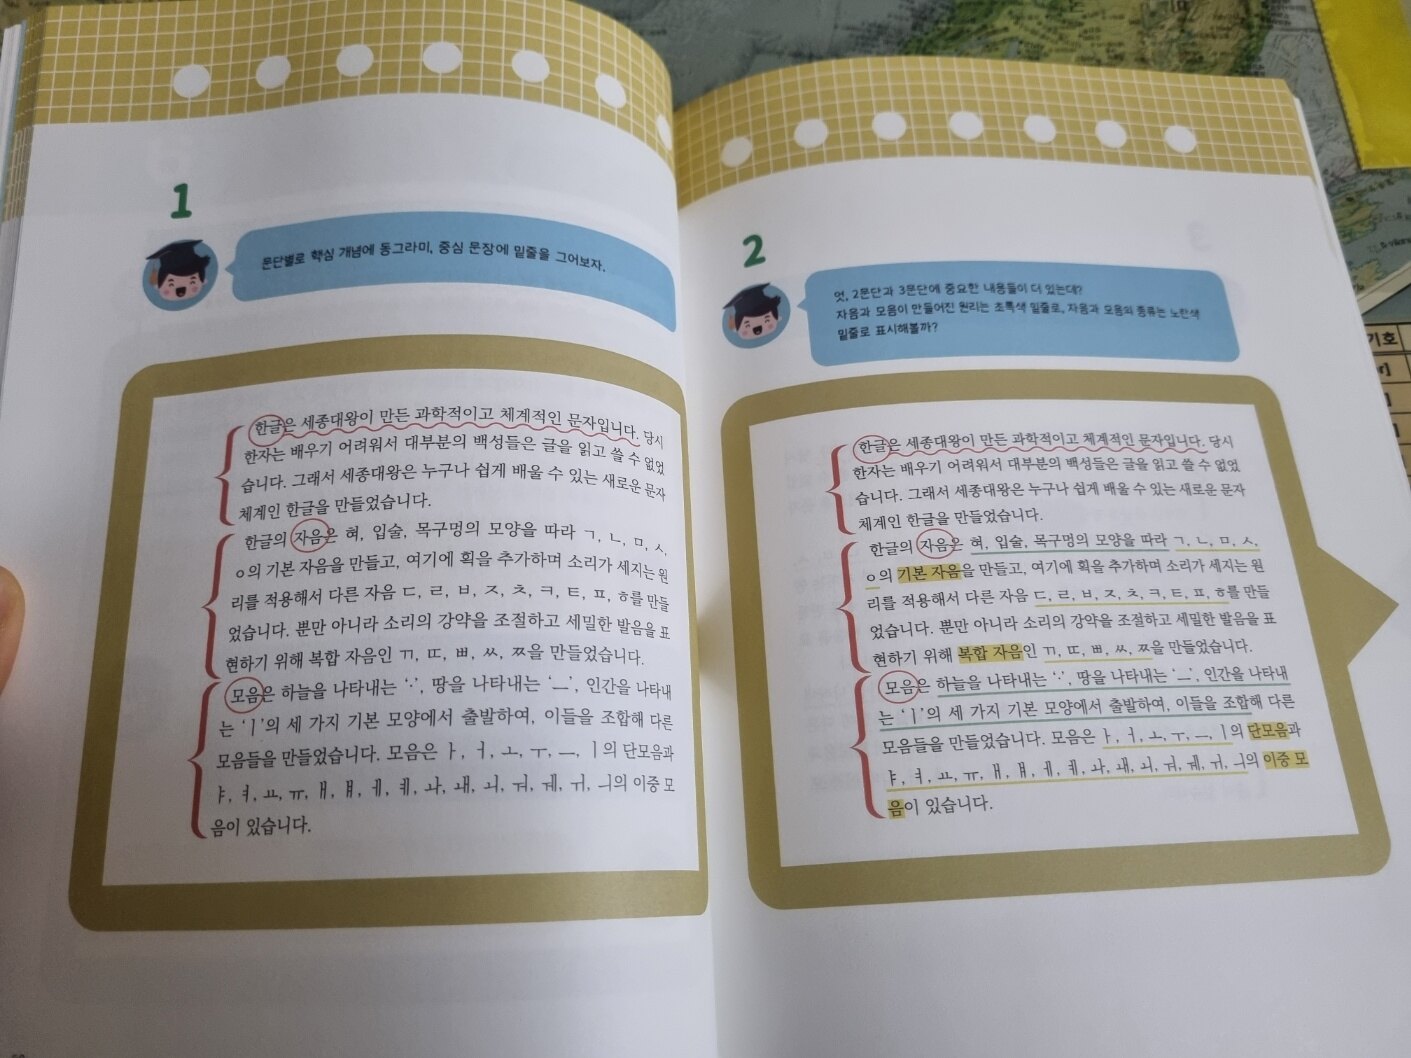 1
문단별로 핵심 개념에 동그라미, 중심 문장에 밑줄을 그어보자.
한글은 세종대왕이 만든 과학적이고 체계적인 문자입니다. 당시
한자는 배우기 어려워서 대부분의 백성들은 글을 읽고 쓸 수 없었
습니다. 그래서 세종대왕은 누구나 쉽게 배울 수 있는 새로운 문자
체계인 한글을 만들었습니다.
한글의 자음은 혀, 입술, 목구멍의 모양을 따라 ㄱ, ㄴ, ㅁ, ㅅ,
ㅇ의 기본 자음을 만들고, 여기에 획을 추가하며 소리가 세지는 원
리를 적용해서 다른 자음 ㄷ, ㄹ, ㅂ, ㅈ, ㅊ, ㅋ, ㅌ, ㅍ, ㅎ를 만들
었습니다. 뿐만 아니라 소리의 강약을 조절하고 세밀한 발음을 표
현하기 위해 복합 자음인 ㄲ, ㄸ, ㅃ, ㅆ, ㅉ을 만들었습니다.
모음은 하늘을 나타내는 '·', 땅을 나타내는 'ㅡ', 인간을 나타내
는 'ㅣ'의 세 가지 기본 모양에서 출발하여, 이들을 조합해 다른
모음들을 만들었습니다. 모음은 ㅏ, ㅓ, ㅗ, ㅜ, ㅡ, ㅣ의 단모음과
ㅑ, ㅕ, ㅛ, ㅠ, ㅐ, ㅒ, ㅔ, ㅖ, ㅘ, ㅙ, ㅚ, ㅝ, ㅞ, ㅟ, ㅢ의 이중 모
음이 있습니다.
2
엇, 2문단과 3문단에 중요한 내용들이 더 있는데?
자음과 모음이 만들어진 원리는 초록색 밑줄로, 자음과 모음의 종류는 노란색
밑줄로 표시해볼까?
한글은 세종대왕이 만든 과학적이고 체계적인 문자입니다. 당시
한자는 배우기 어려워서 대부분의 백성들은 글을 읽고 쓸 수 없었
습니다. 그래서 세종대왕은 누구나 쉽게 배울 수 있는 새로운 문자
체계인 한글을 만들었습니다.
한글의 자음은 혀, 입술, 목구멍의 모양을 따라 ㄱ, ㄴ, ㅁ, ㅅ,
ㅇ의 기본 자음을 만들고, 여기에 획을 추가하며 소리가 세지는 원
리를 적용해서 다른 자음 ㄷ, ㄹ, ㅂ, ㅈ, ㅊ, ㅋ, ㅌ, ㅍ, ㅎ를 만들
었습니다. 뿐만 아니라 소리의 강약을 조절하고 세밀한 발음을 표
현하기 위해 복합 자음인 ㄲ, ㄸ, ㅃ, ㅆ, ㅉ을 만들었습니다.
모음은 하늘을 나타내는 '·', 땅을 나타내는 'ㅡ', 인간을 나타내
는 'ㅣ'의 세 가지 기본 모양에서 출발하여, 이들을 조합해 다른
모음들을 만들었습니다. 모음은 ㅏ, ㅓ, ㅗ, ㅜ, ㅡ, ㅣ의 단모음과
ㅑ, ㅕ, ㅛ, ㅠ, ㅐ, ㅒ, ㅔ, ㅖ, ㅘ, ㅙ, ㅚ, ㅝ, ㅞ, ㅟ, ㅢ의 이중 모
음이 있습니다.
기호